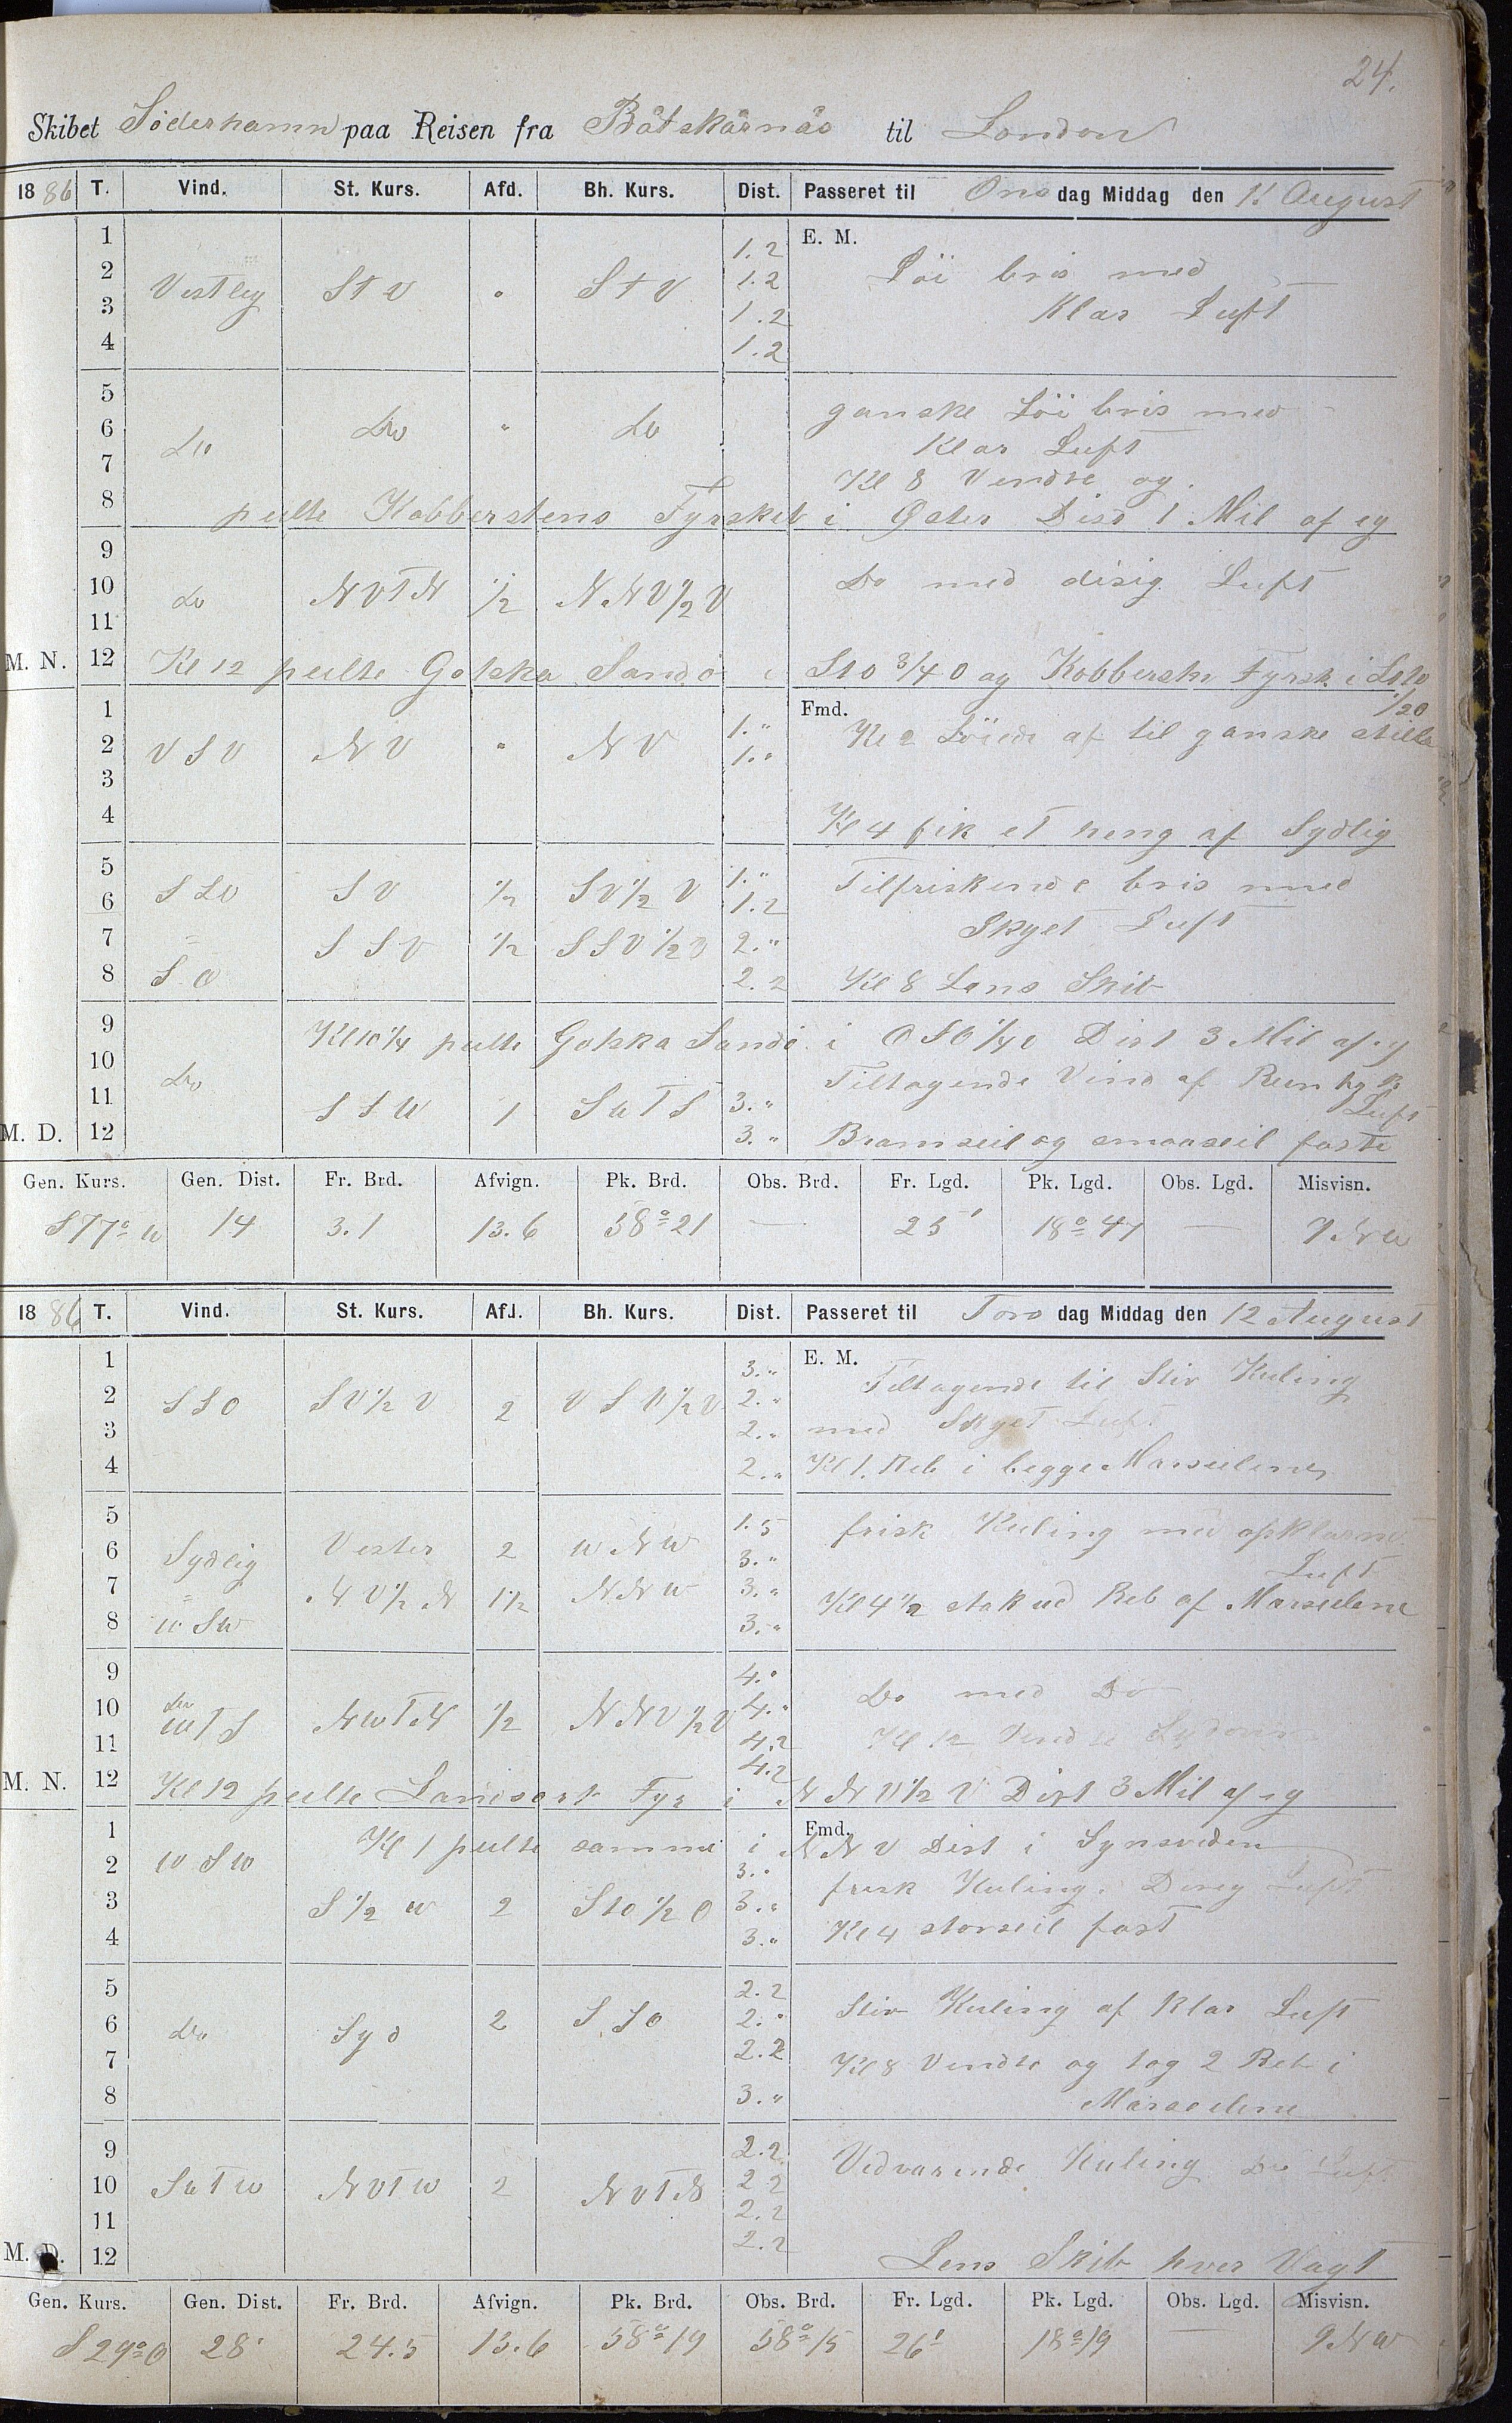 24.
Skibet Söderhamn paa Reisen fra Båtskärnäs til London
1886 T. Vind. St. Kurs. Afd. Bh. Kurs. Dist. Passeret til Onsdag Middag den 11 August
E. M.
1 1.2
2 Vestlig StV " StV 1.2 Löi bris med
3 1.2 Klar Luft
4 1.2
5 ganske Löi bris med
6 Do Do " Do Klar Luft
7 Kl 8 Vendte og
8 peilte Kobberstens Fyrskib i Öster Dist 1 Mil af eg
9
10 Do NVTN 1/2 NNV1/2V Do med disig Luft
11
M. N. 12 Kl 12 peilte Gotska Sandö i StO 3/4 O og Kobberste Fyrsk i StO 1/2O
Fmd.
1 1."
2 VSV NV " NV 1." Kl 2 Löiede af til ganske stille
3
4 Kl 4 fik et heng af Sydlig
5 1." Tilfriskende bris med
6 SSO SV 1/2 SV1/2V 1.2 Skyet Luft
7 " SSV 1/2 SSV1/2V 2."
8 SO 2.2 Kl 8 Lens Skib
9 Kl 10 1/4 peilte Gotska Sandö i OSO 1/4O Dist 3 Mil af eg
10 Do Tiltagende Vind af
11 SSW 1 SWTS 3." Luft
M. D. 12 3." Bramseil og smaaseil faste
Gen. Kurs. Gen. Dist. Fr. Brd. Afvign. Pk. Brd. Obs. Brd. Fr. Lgd. Pk. Lgd. Obs. Lgd. Misvisn.
S77°W 14 3.1 13.6 58°21 — 25' 18°47 —
1886 T. Vind. St. Kurs. Afd. Bh. Kurs. Dist. Passeret til Torsdag Middag den 12 August
E. M.
1 3." Tiltagende til Stiv Kuling
2 SSO SV1/2V 2 VSV1/2V 2."
3 2." med Skyet Luft
4 2." Kl 1. Reb i begge Marseilene
5 1.5 frisk Kuling med opklarne
6 Sydlig Vester 2 WNW 3." Luft
7 " NV1/2N 1 1/2 NNW 3." Kl 4 1/2 stak ud Reb af Marseilene
8 WSW 3."
9 4."
10 Do WTS NWTN 1/2 NNV1/2V 4." Do med Do
11 4.2 Kl 12 Vendte
M. N. 12 4.2 Kl 12 peilte Landsort Fyr i NNV1/2V Dist 3 Mil af eg
Fmd.
1 Kl 1 peilte samme i NNV Dist i Synsviden
2 WSW 3." frisk Kuling. Disig Luft
3 S1/2W 2 StO1/2O 3."
4 3." Kl 4 storseil fast
5 2.2
6 Do Syd 2 SSO 2." Stiv Kuling af Klar Luft
7 2.2 Kl 8 Vendte og tog 2 Reb i
8 3." Marseilene
9 2.2 Vedvarende Kuling Do Luft
10 SWTW NVTW 2 NVTN 2.2
11 2.2
M. D. 12 2.2 Lens Skib hver Vagt
Gen. Kurs. Gen. Dist. Fr. Brd. Afvign. Pk. Brd. Obs. Brd. Fr. Lgd. Pk. Lgd. Obs. Lgd. Misvisn.
S29°O 28' 24.5 13.6 58°19 58°15 26' 18°19 — 9. NW